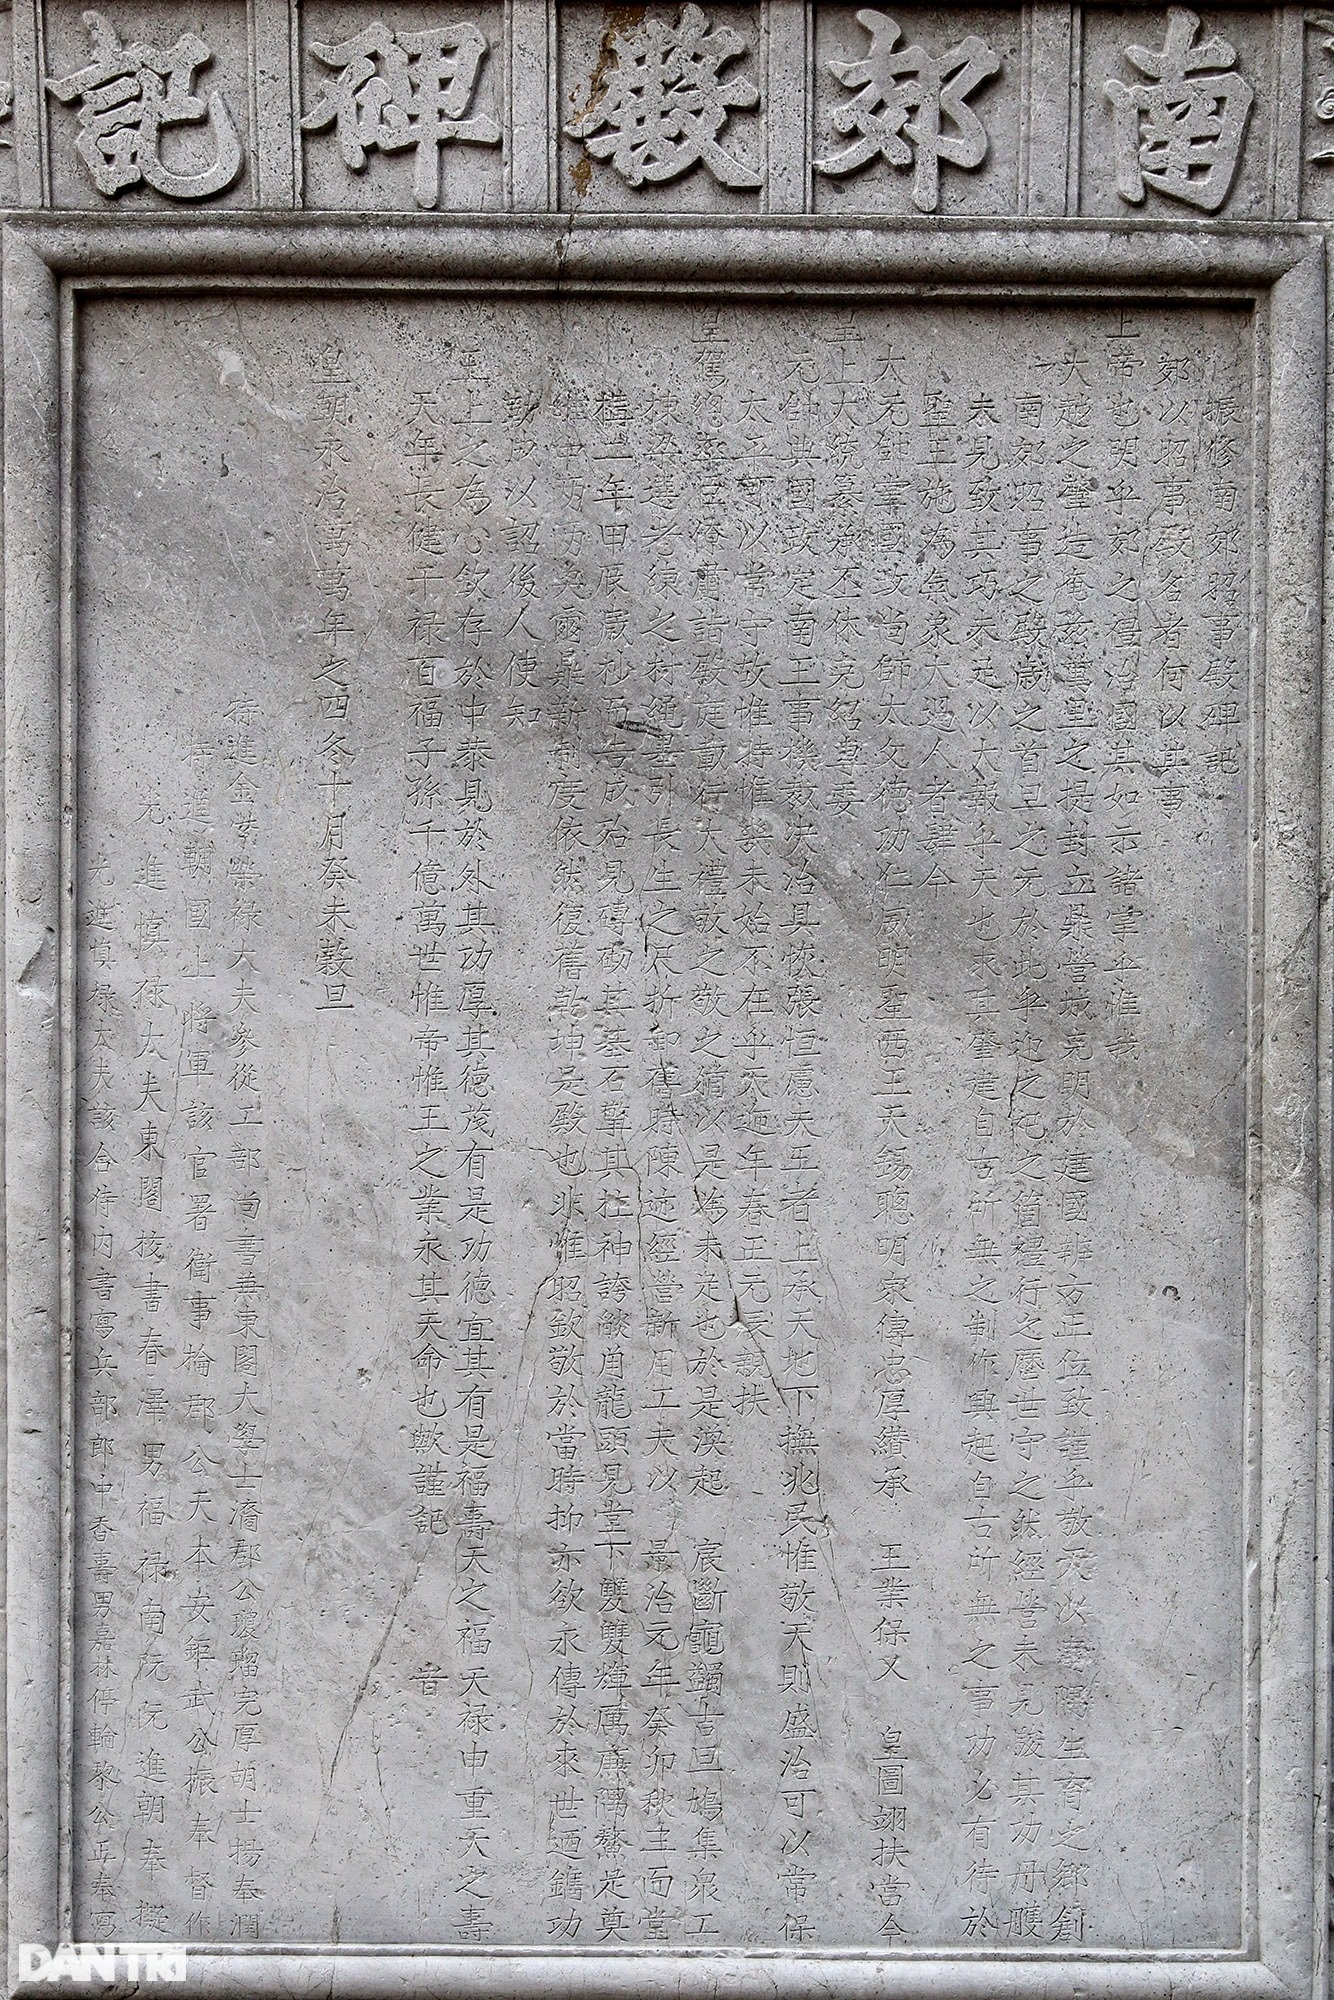 南郊殿碑記
振修南郊昭事殿碑記
郊以昭事殿名者何以其事
上帝也明乎郊之禮治國其如示諸掌乎惟我
大越之肇造奄茲萬里之提封立鼎營城克明於建國辨方正位致謹乎敬天次每陽生育之鄉創
南郊昭事之殿歲之首旦之元於此乎迎之祀之簡禮行之歷世守之然經營未見設其功丹雘
未見致其巧未足以大報乎天也求其肇建自古所無之制作興起自古所無之事功必有待於
聖王施為氣象大過人者肆今
大元帥掌國政尚師太父德功仁威明聖西王天錫聰明家傳忠厚纘承 王業保乂 皇圖翊扶當今
皇上大統纂承丕休克紹專委
元帥典國政定南王事機裁決治具恢張恒慮夫王者上承天地下撫兆民惟敬天則盛治可以常保
太平可以常守故惟時惟幾未始不在乎天迤年春正元辰親扶
皇駕總率臣僚肅詣殿庭勤行大禮敬之敬之猶以是為未足也於是渙起 宸斷龜蠲吉旦鳩集眾工
棟梁選老練之材繩墨引長生之尺折卸舊時陳迹經營新用工夫以 景治元年癸卯秋主而堂
構二年甲辰歲杪而告成殆見磚砌其基石擎其柱神誇燄角龍頭見堂下雙雙輝厲廉隅鰲足奠
維中昂昂奐奐鼎新制度依然復舊乾坤是殿也非惟昭欽敬於當時抑亦欲永傳於來世迺鐫功
勒成以詔後人使知
王上之為心欽存於中恭見於外其功厚其德茂有是功德宜其有是福壽天之福天祿申重天之壽
天年長健千祿百福子孫千億萬世惟帝惟王之業永其天命也歟謹記 音
皇朝永治萬萬年之四冬十月癸未穀旦
特進金紫榮祿大夫參從工部尚書兼東閣大學士濟郡公瓊瑠完厚胡士揚奉潤
特進輔國上將軍該官署衛事掄郡公天本安鉅武公振奉督作
光進慎祿大夫東閣校書春澤男福祿南阮阮進朝奉擬
光進慎祿大夫該合侍內書寫兵部郎中香壽男嘉林停輪黎公兵奉寫
DANTRI